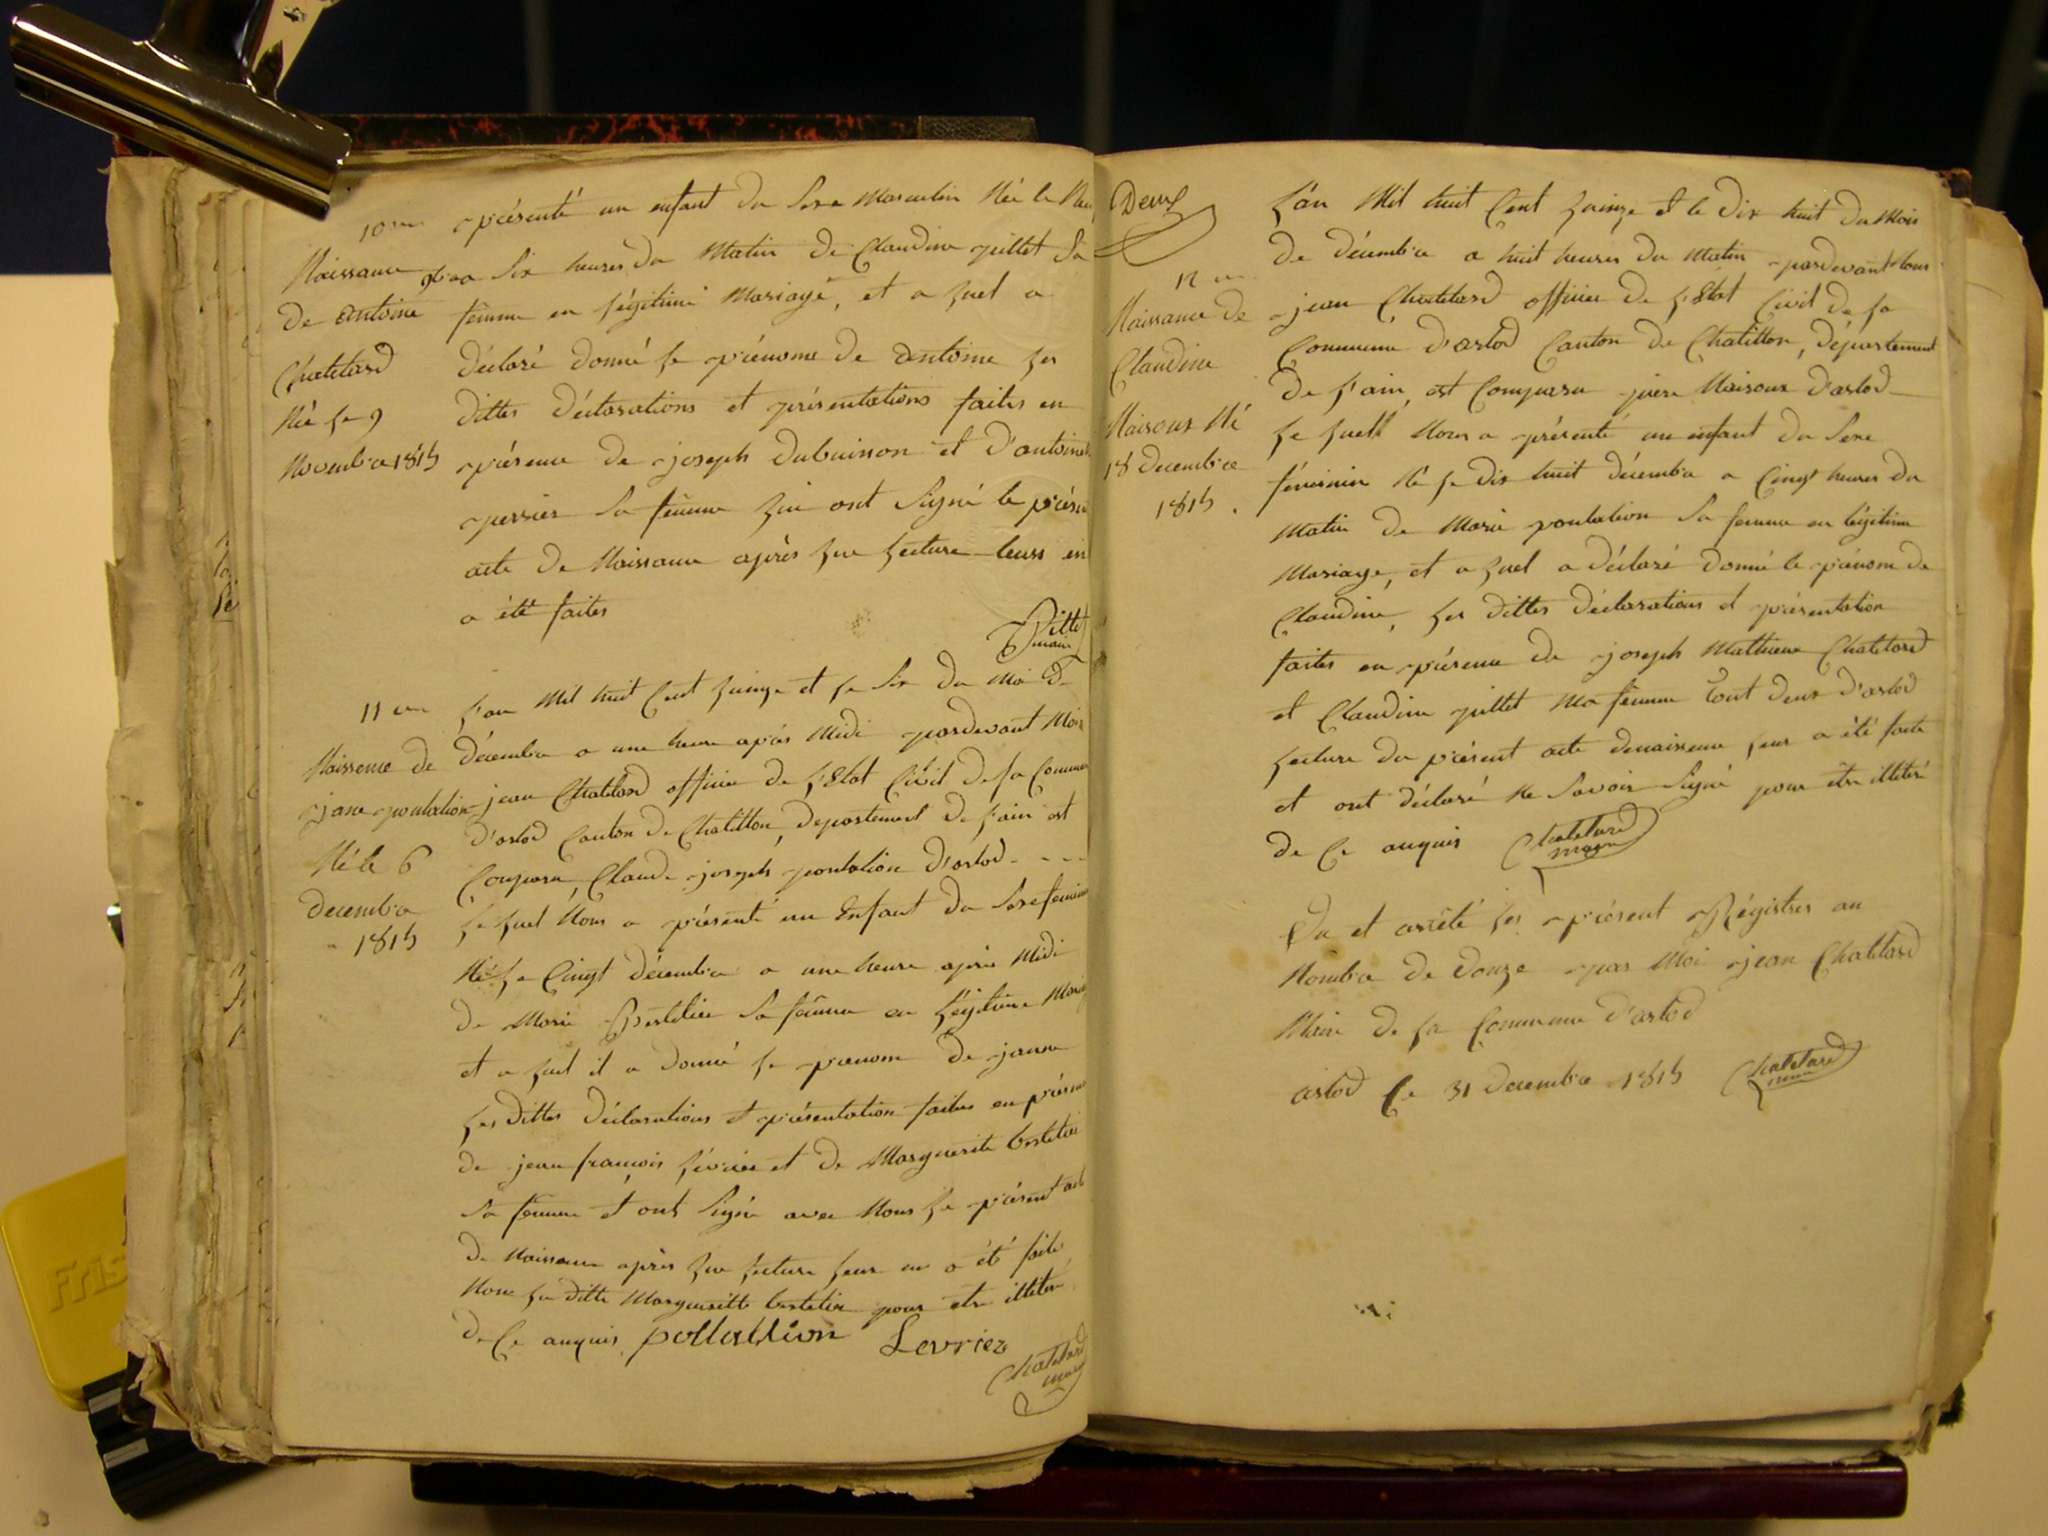 10me
Naissance
de antoine
Chatelard
Né le 9
Novembre 1815
présenté un enfant du Sexe Masculin Né le
9bre a Six heures du Matin de Claudine juillet Sa
femme en légitime Mariage, et a quel a
déclaré donné le prénome de antoine les
dittes déclarations et présentations faites en
présence de joseph dubuisson et d'antoinet
perrier Sa femme qui ont Signé le prése
acte de Naissance après que lecture leurs en
a été faites
maire
11me
Naissence de
jane poulation
Né le 6
decembre
1815
l'an Mil huit Cent quinze et le Six du moi de
décembre a une heure après Midi pardevant Moi
jean Chatelard officier de l'Etat Civil de la Commun
d'arlod Canton de Chatillon, departement de l'ain est
Comparu, Claude joseph poulation d'arlod
le quel Nous a présenté un Enfant du Sexe feminin
Né le Cinqt décembre a une heure après Midi
de Marie Bertelier Sa femme en légitime Mari
et a quel il a donné le prenom de janne
les dittes déclarations et présentation faites en présen
de jean françois lévrier et de Marguerite bertelie
Sa femme et ont Signé avec Nous le présent act
de Naissance après que lecture leur en a été faite
Non la ditte Margueritte bertelie pour etre illitéré
de Ce enquis pollattion Levrier
Chatelard
maire
Deux
12me
Naissance de
Claudine
Naisoux Né
18 decembre
1815.
l'an Mil huit Cent quinze et le dix huit du Mois
de décembre a huit heures du Matin pardevant Nous
jean Chatelard officier de l'Etat Civil de la
Commune d'arlod Canton de Chatillon, département
de l'ain, est Comparu piere Naisoux d'arlod
le quell Nous a présenté un enfant du Sexe
féminin Né le dix huit décembre a Cinqt heures du
Matin de Marie poulation Sa femme en légitime
Mariage, et a quel a déclaré donné le prénom de
Claudine, les dittes déclarations et présentation
faites en présence de joseph Mathieux Chatelard
et Claudine juillet Ma femme tout deux d'arlod
lecture du présent acte denaisence leur a été faite
et ont déclaré Ne Savoir Signé pour être illitéré
de Ce enquis Chatelard
maire
Clu et arrêté les présent Régistres au
Nombre de douze par Moi jean Chatelard
Maire de la Commune d'arlod
arlod Ce 31 decembre 1815 Chatelard
maire